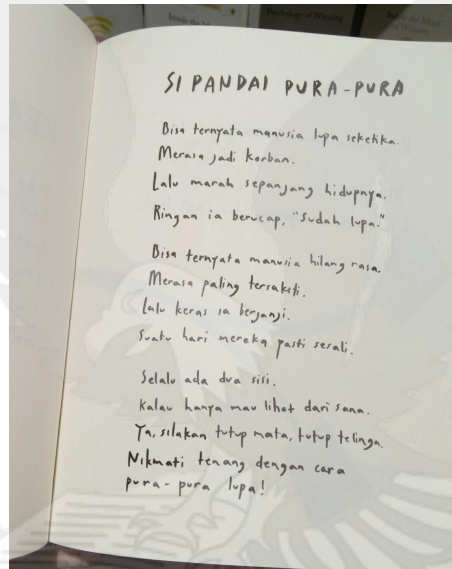 Psychology of Winning
Inside the Mind
of Winners
SI PANDAI PURA-PURA
Bisa ternyata manusia lupa seketika.
Merasa jadi korban.
Lalu marah sepanjang hidupnya.
Ringan ia berucap, "Sudah lupa."
Bisa ternyata manusia hilang rasa.
Merasa paling tersakiti.
Lalu keras ia berjanji.
Suatu hari mereka pasti sesali.
Selalu ada dua sisi.
Kalau hanya mau lihat dari sana.
Ya, silakan tutup mata, tutup telinga.
Nikmati tenang dengan cara
pura-pura lupa!